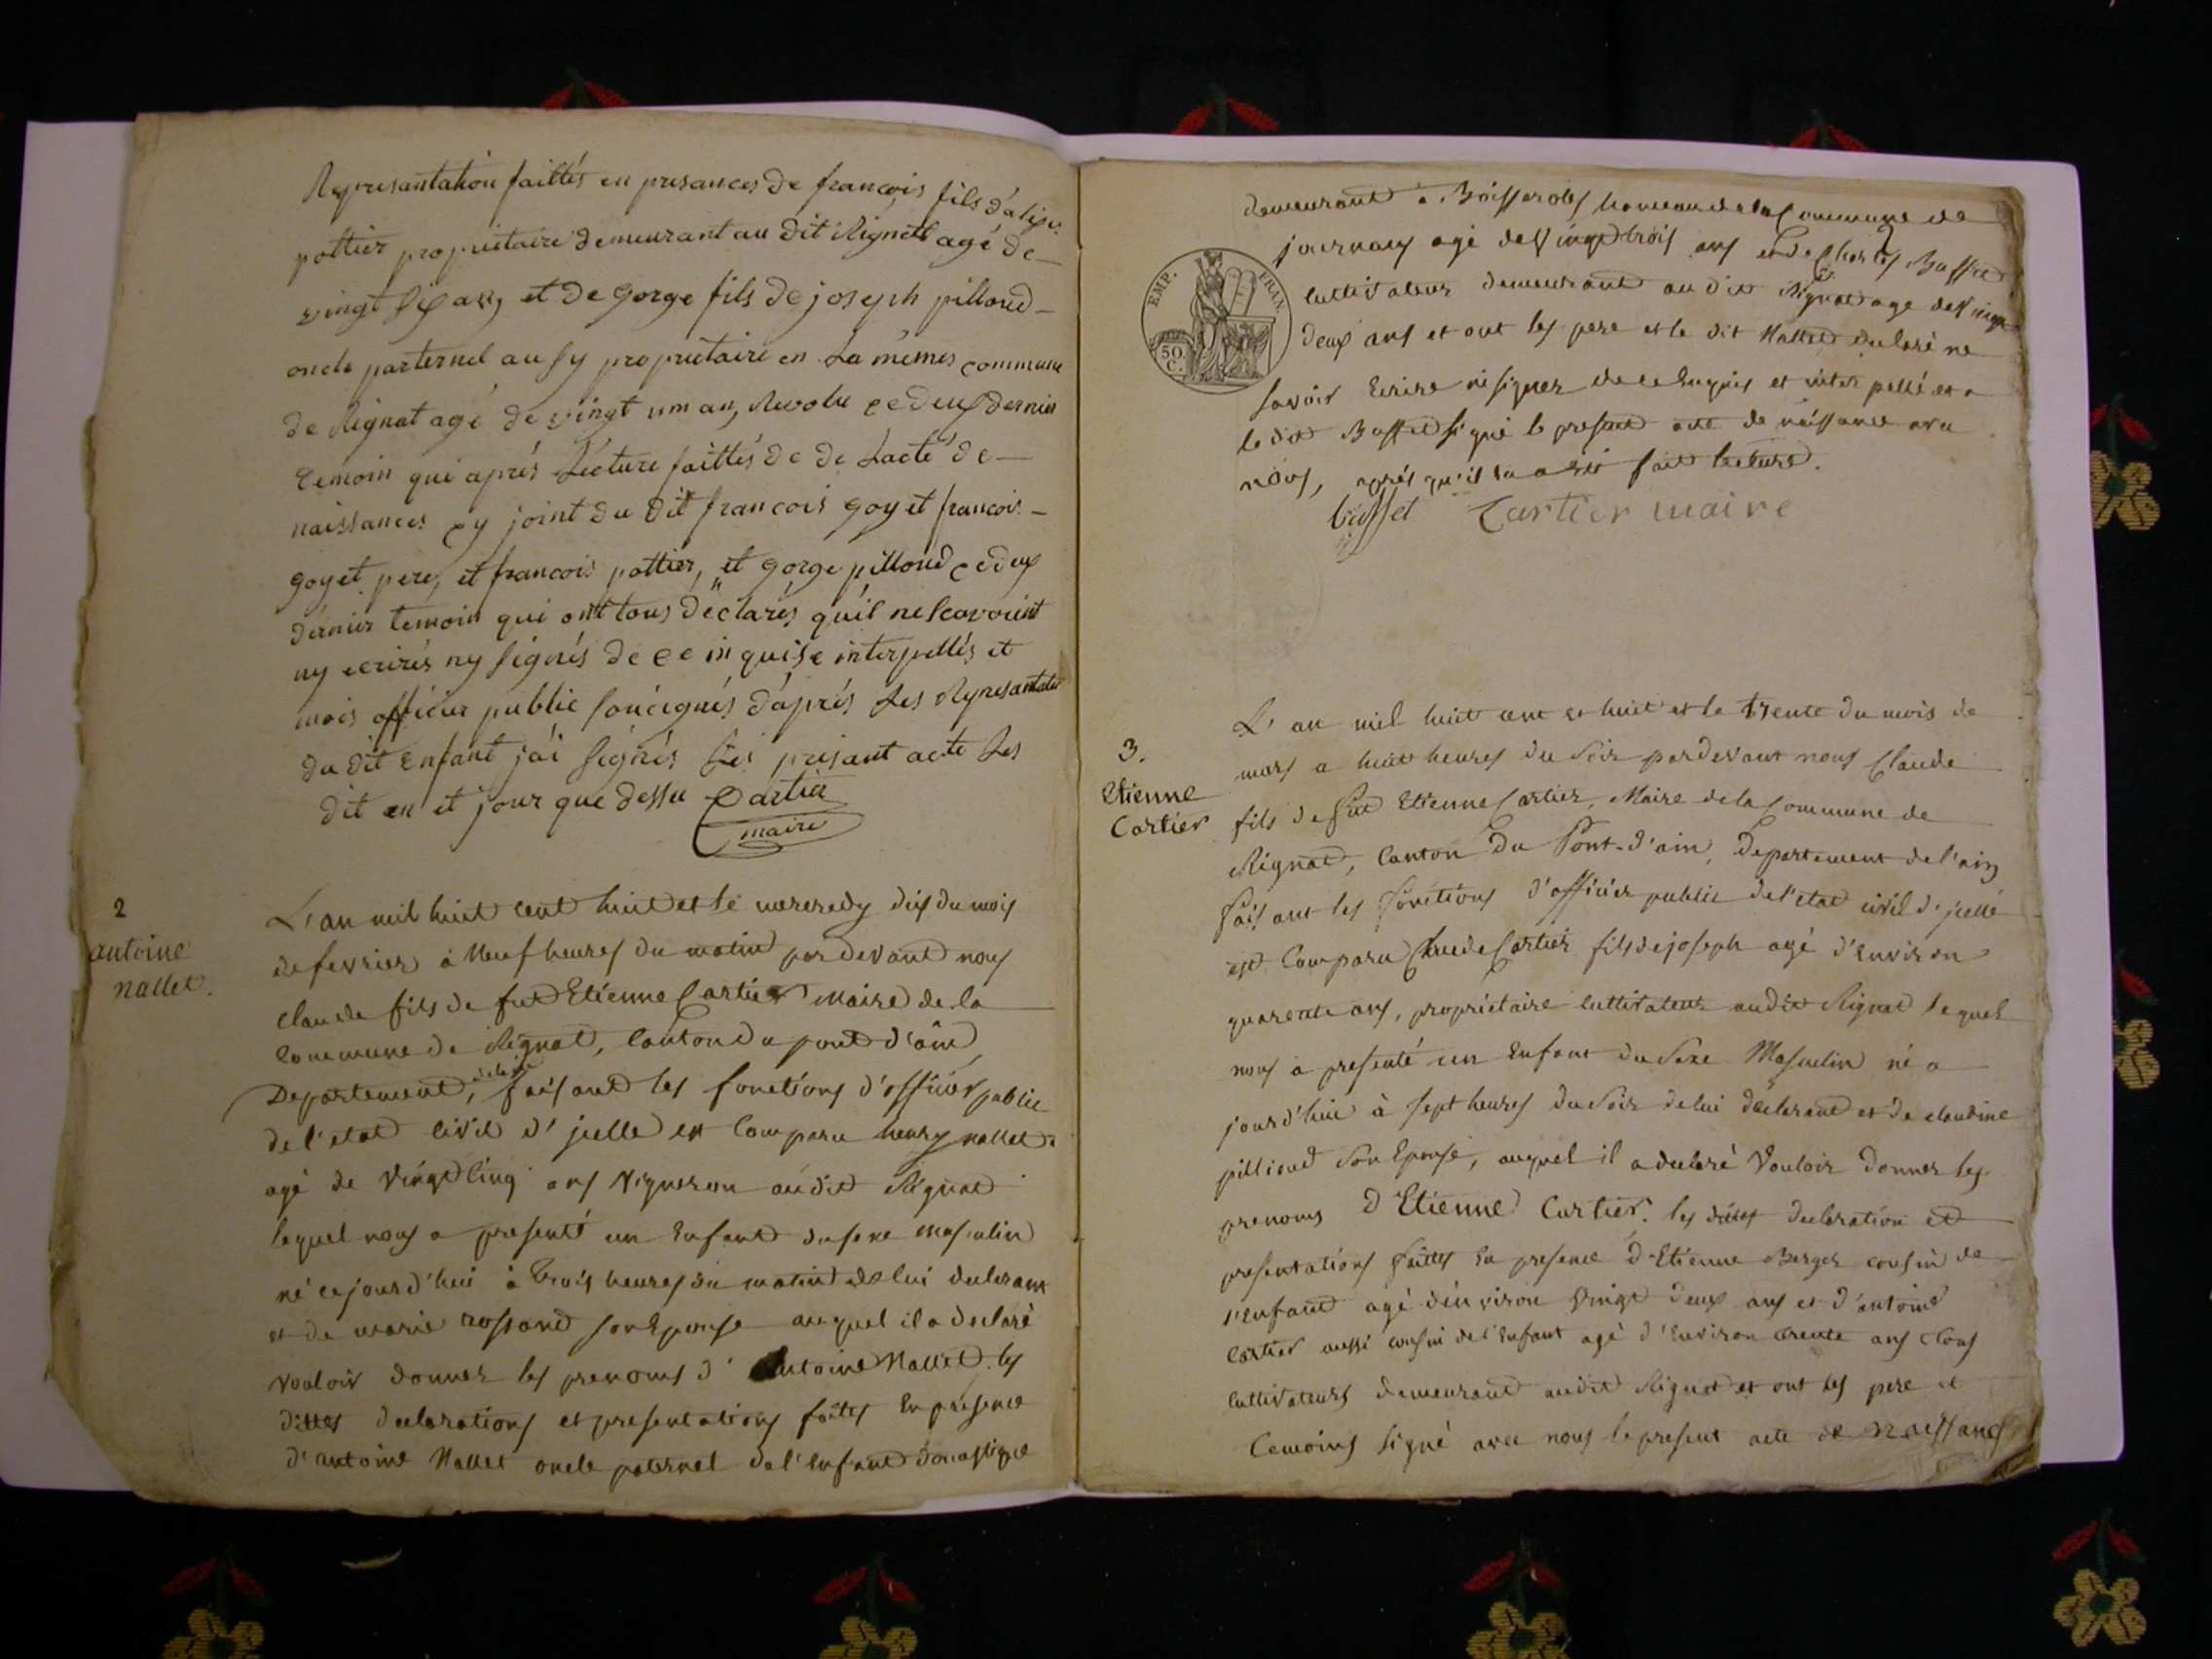 Represantation faittés en presances de francois fils d'alexi
pottier propriétaire demeurant au dit Rignat agé de
vingt six ans et de gorge fils de joseph pilloud
oncle parternel ausy propriétaire en La mêmes commune
de Rignat agé de vingt un an, Revolu ce deux dernier
temoin qui aprés Lécture faittés de de Lacte de
naissances cy joint du dit francois goyet francois
goyet pere, et francois pottier, et gorge pilloud ce deux
dérnier temoin qui ont tous déclarés qu'il ne scavoint
ny ecrirés ny signés de ce in quise interpellés et
mois officier public soucignés d'aprés Les Represantation
du dit enfant j'ai signés Les présant acte Les
dit an et jour que dessu Cartier
maire
2
antoine
nallet.
L'an mil huit cent huit et le mercredy dix du mois
de fevrier à Neuf heures du matin par devant nous
claude fils de fut Etienne Cartier Maire de la
Commune de Rignat, Canton du pont d'ain
de l'ain
Departement, faisant les fonctions d'officier public
de l'etat civil d'icelle est Comparu henry nallet
agé de vingt cinq ans Vigneron audit Rignat
lequel nous a presenté un Enfant du sexe masculin
né ce jourd'hui à trois heures du matin de lui declarant
et de marie rossand son Epouse auquel il a declaré
vouloir donner les prenoms d' Antoine Nallet. les
dittes declarations et presentations faites En presence
d'antoine Nallet oncle paternel de l'Enfant domestique
demeurant à Boisserolles hameau de la Commune de
journans agé de Vingt trois ans et de Charles Buffet
EMP. FRAN.
50
C.
cultivateur demeurant au dit Rignat agé de Vingt
deux ans et ont les pere et le dit Nallet declaré ne
savoir Ecrire ni signer de ce Enquis et interpellé et a
le dit Buffet signé le present acte de naissance avec
nous, après qu'il en a été fait lecture.
buffet Cartier maire
3.
Etienne
Cartier
L'an mil huit cent et huit et le trente du mois de
mars a huit heures du Soir par devant nous Claude
fils de fut Etienne Cartier, Maire de la Commune de
Rignat, Canton du Pont-d'ain, Departement de l'ain
faisant les fonctions d'officier public de l'etat civil d'icelle
est Comparu Claude Cartier fils de joseph agé d'Environ
quarente ans, propriétaire cultivateur audit Rignat lequel
nous a presenté un Enfant du Sexe Masculin né a
jourd'hui à sept heures du Soir de lui déclarant et de claudine
pilloud son Epouse, auquel il a declaré Vouloir Donner les
prenoms d'Etienne Cartier. les dites declaration et
presentations faittes En presence d'Etienne Berger cousin de
l'enfant agé d'environ Vingt deux ans et d'antoine
Cartier aussi cousin de l'Enfant agé d'Environ trente ans tous
cultivateurs demeurant audit Rignat et ont les pere et
temoins signé avec nous le present acte de naissance